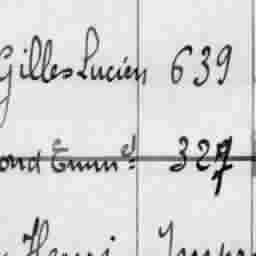 Gilles Lucien 639
ond Emm^el 327
Henri Impr